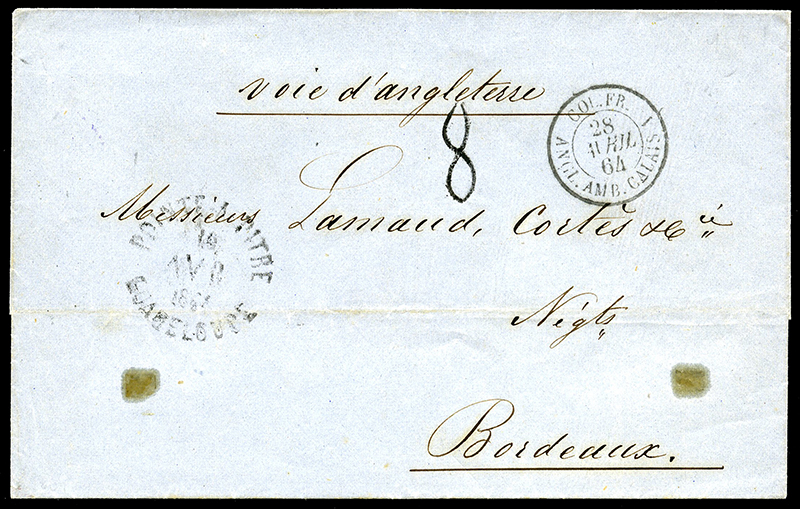 voie d'angleterre
COL. FR. ANGL. AMB. CALAIS
28
AVRIL
64
8
Messieurs Lamaud, Cortès & Cie
POINTE A PITRE
14
AVR
1864
GUADELOUPE
Négts
Bordeaux.